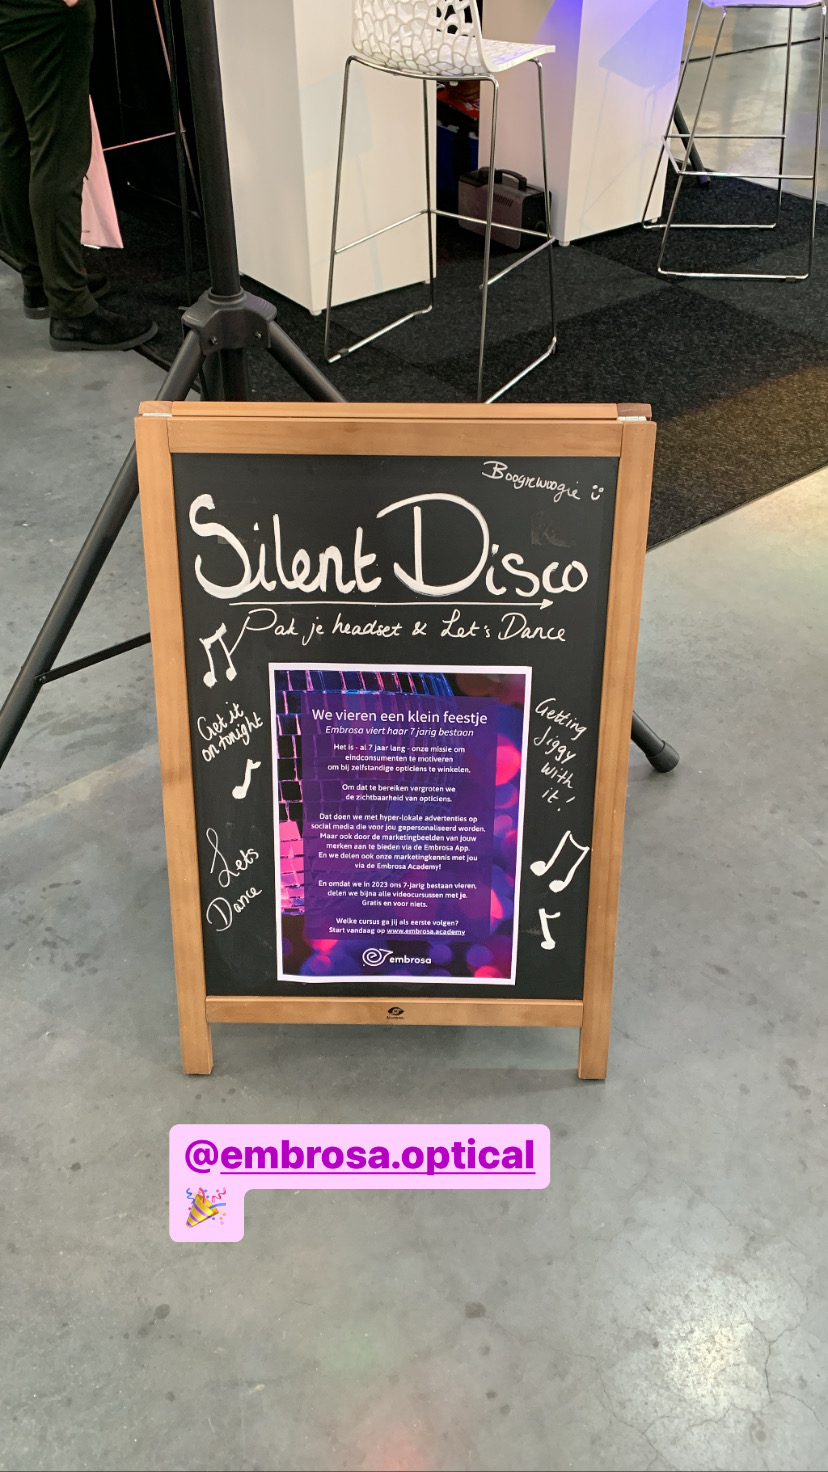 Boogiewoogie
Silent Disco
Pak je headset & Let's Dance
Get it
on tonight
Lets
Dance
Getting
Jiggy
with
it!
We vieren een klein feestje
Embrosa viert haar 7 jarig bestaan
Het is - al 7 jaar lang - onze missie om
eindconsumenten te motiveren
om bij zelfstandige opticiens te winkelen.
Om dat te bereiken vergroten we
de zichtbaarheid van opticiens.
Dat doen we met hyper-lokale advertenties op
social media die voor jou gepersonaliseerd worden.
Maar ook door de marketingbeelden van jouw
merken aan te bieden via de Embrosa App.
En we delen ook onze marketingkennis met jou
via de Embrosa Academy!
En omdat we in 2023 ons 7-jarig bestaan vieren,
delen we bijna alle videocursussen met je.
Gratis en voor niets.
Welke cursus ga jij als eerste volgen?
Start vandaag op www.embrosa.academy
embrosa
@embrosa.optical